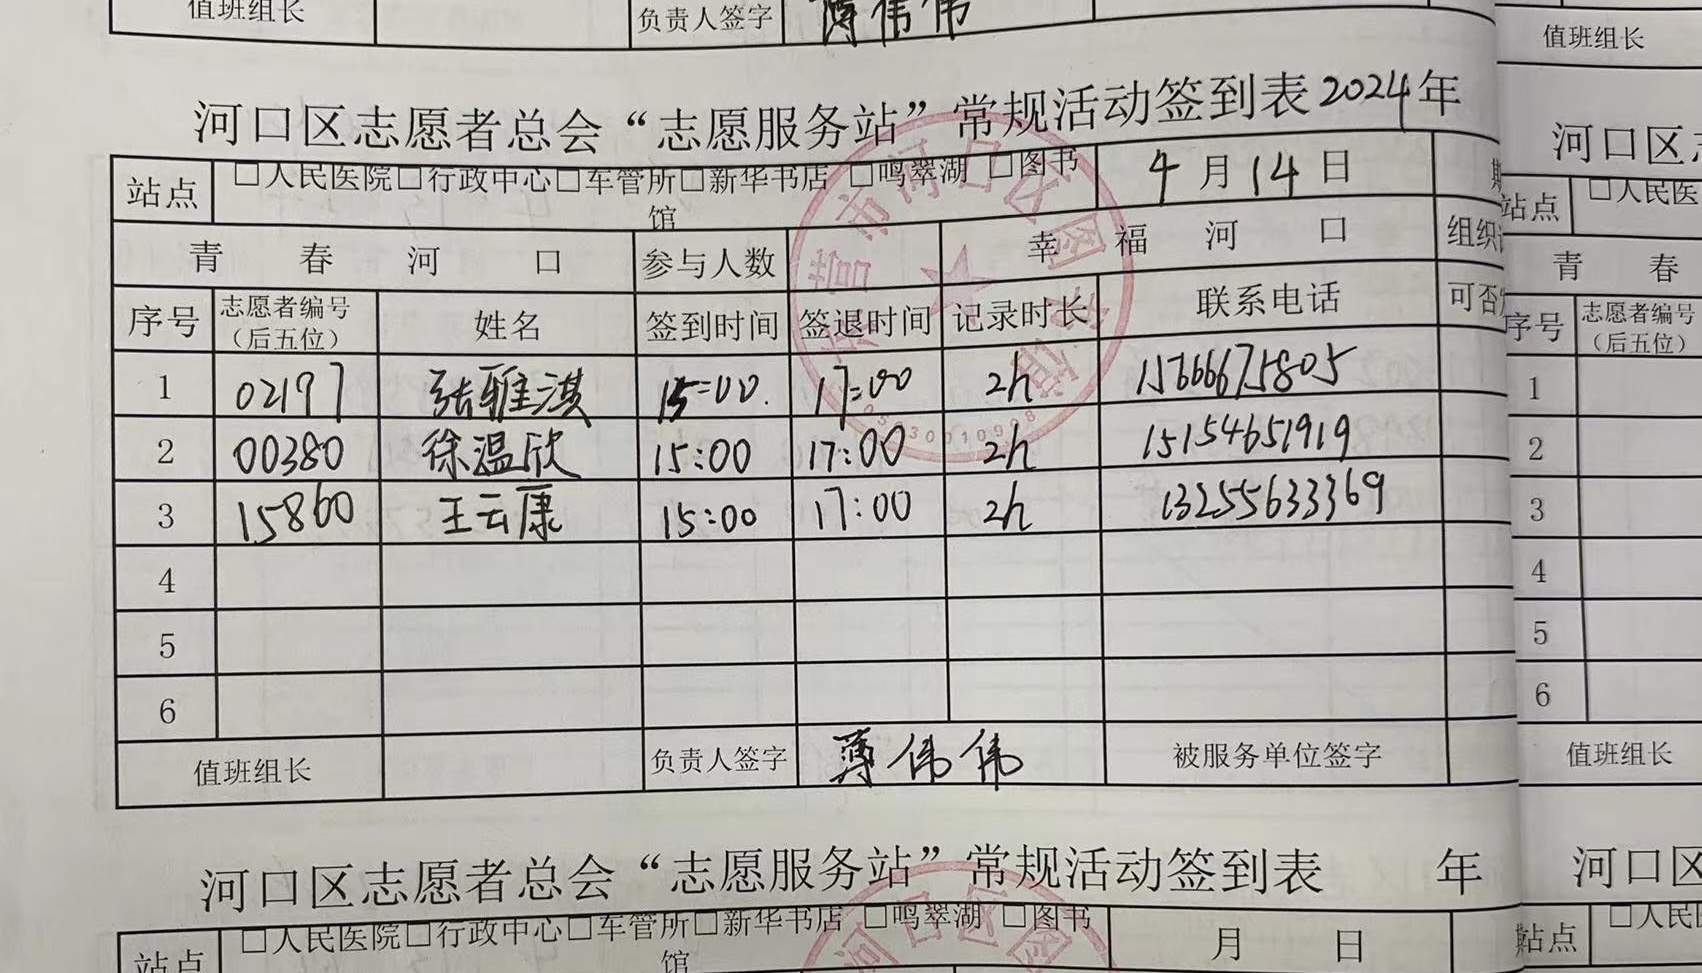 值班组长 负责人签字 薄伟伟
河口区志愿者总会“志愿服务站”常规活动签到表2024年
站点 □人民医院□行政中心□车管所□新华书店 □鸣翠湖 □图书馆 4月14日
青春河口 参与人数 幸福河口 组织
序号 志愿者编号（后五位） 姓名 签到时间 签退时间 记录时长 联系电话 可否
1 02197 张雅淇 15:00 17:00 2h 15666675805
2 00380 徐温欣 15:00 17:00 2h 15154651919
3 15860 王云康 15:00 17:00 2h 13255633369
4
5
6
值班组长 负责人签字 薄伟伟 被服务单位签字
河口区志愿者总会“志愿服务站”常规活动签到表 年
站点 □人民医院□行政中心□车管所□新华书店 □鸣翠湖 □图书馆 月 日
值班组长
河口区
站点 □人民医
青春
序号 志愿者编号（后五位）
1
2
3
4
5
6
值班组长
河口区
站点 □人民